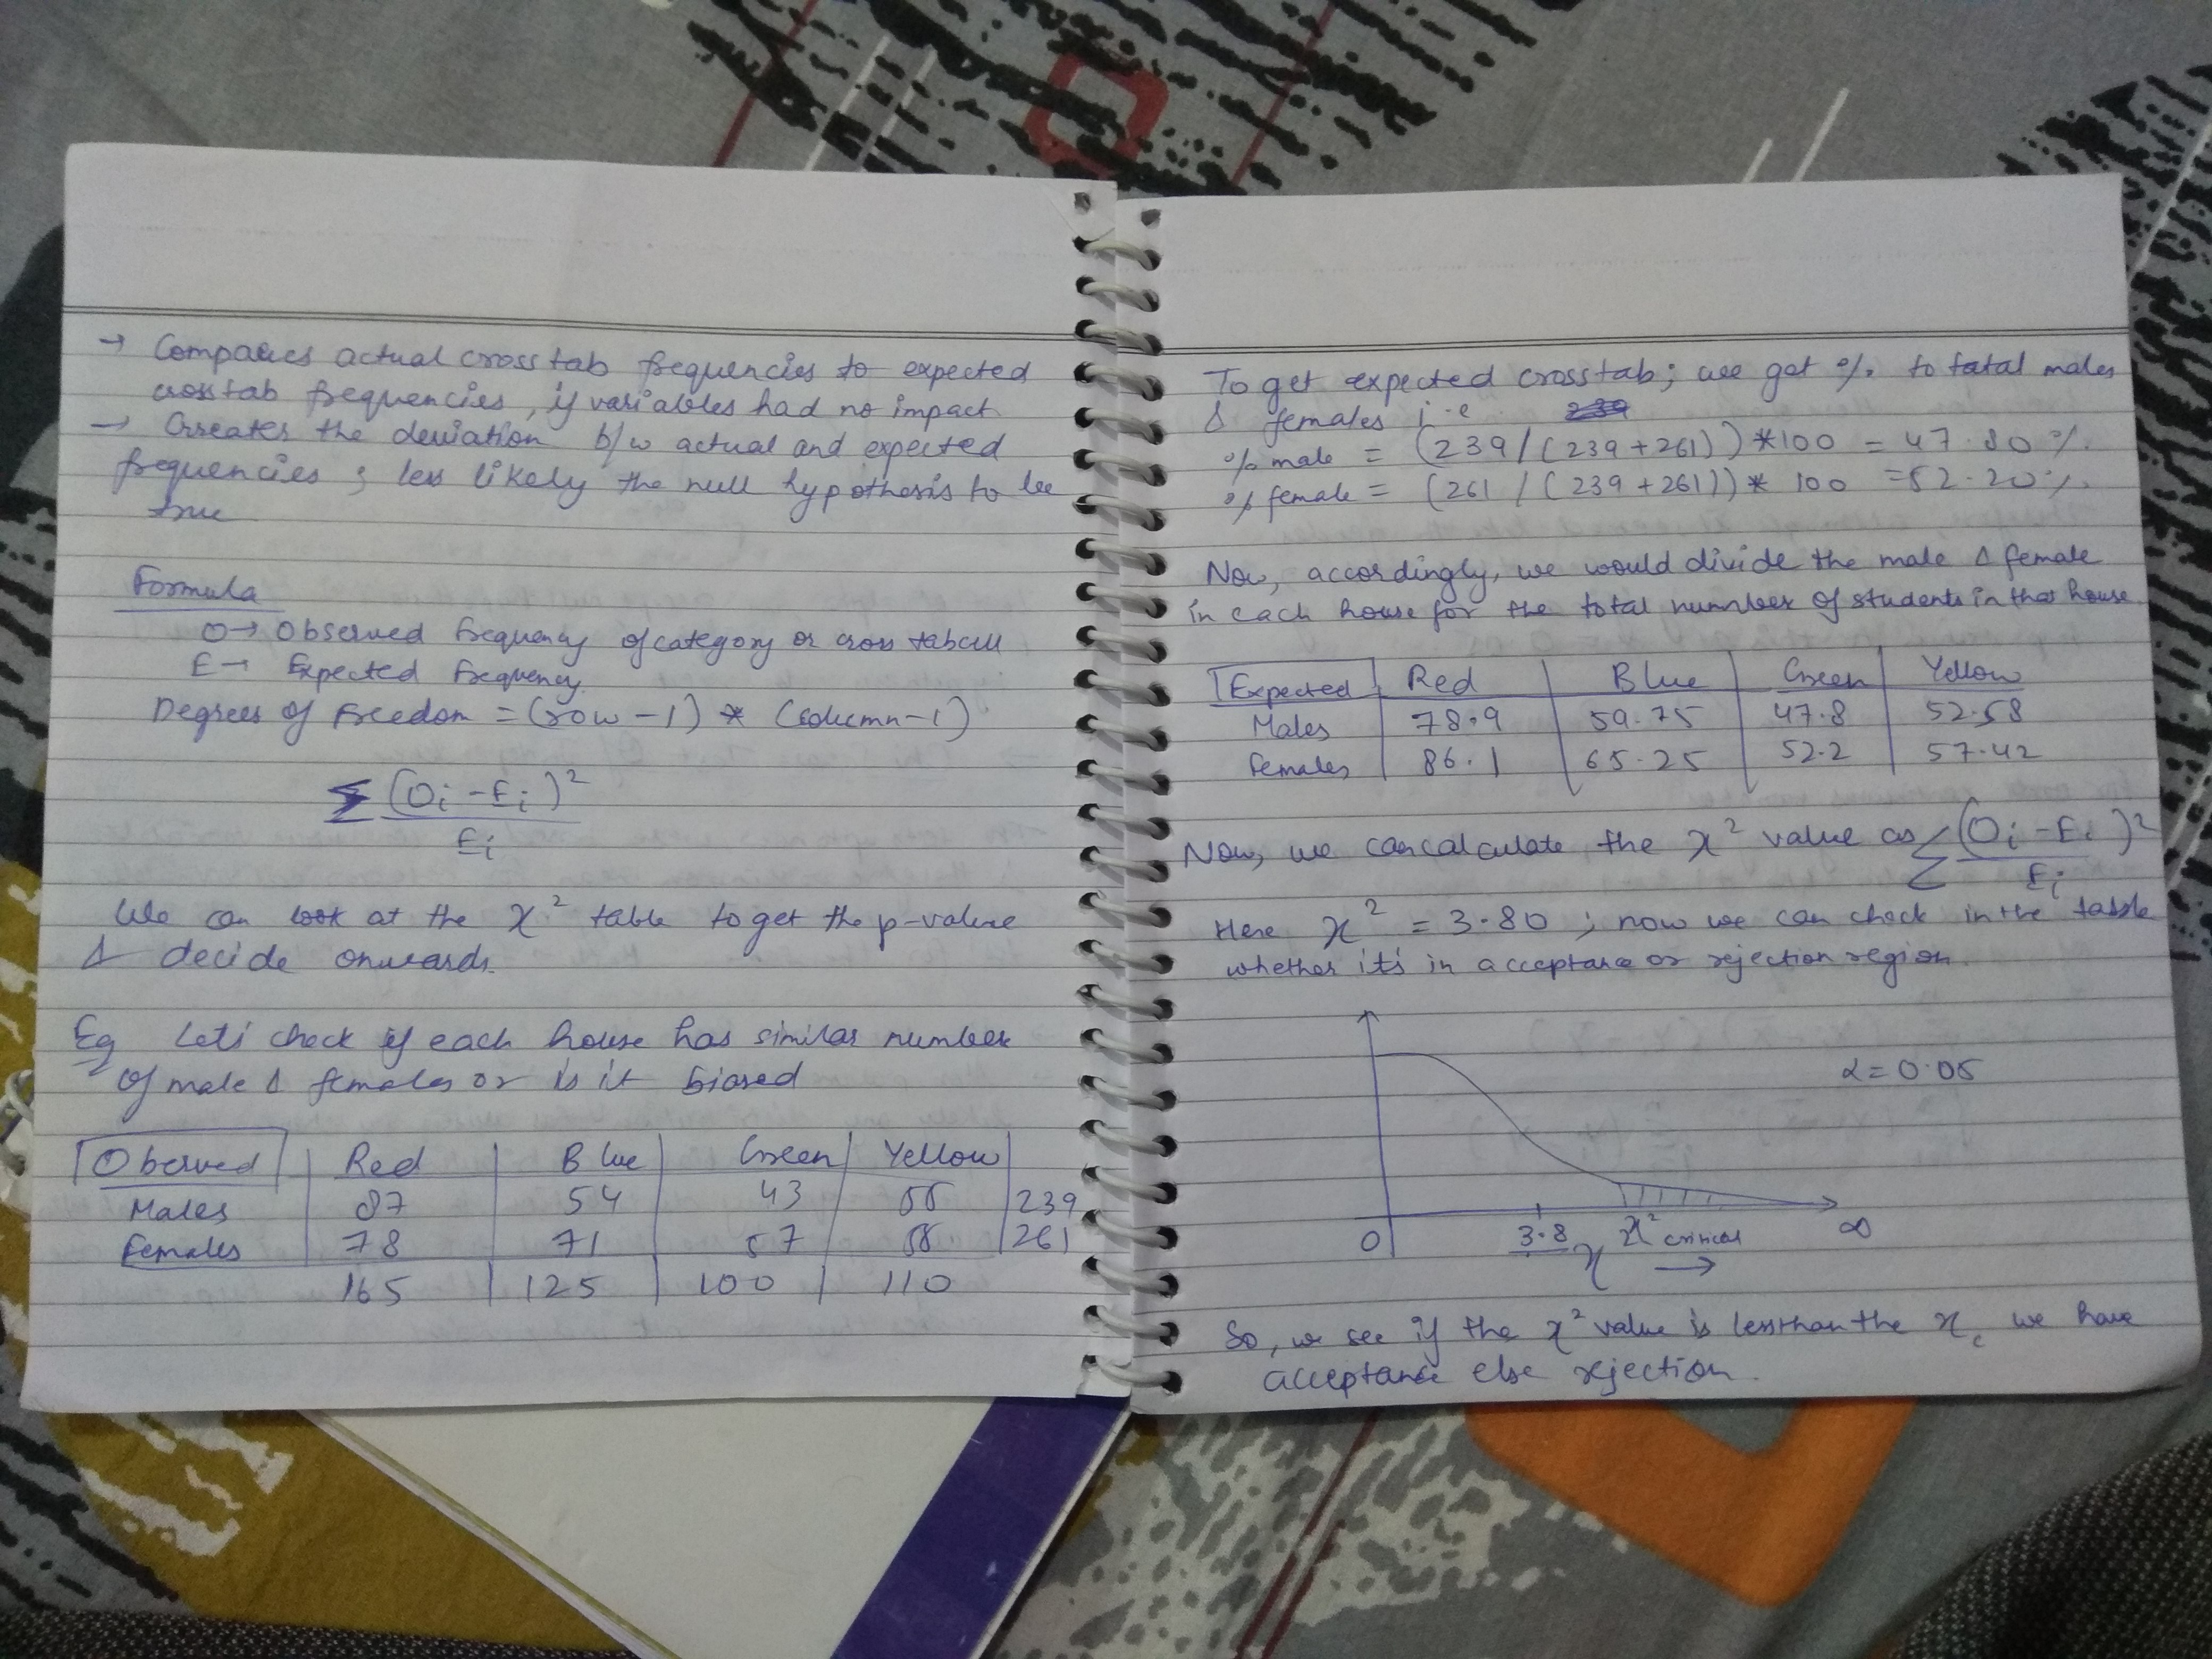 → Compares actual cross tab frequencies to expected
cross tab frequencies, if variables had no impact
→ Greater the deviation b/w actual and expected
frequencies ; less likely the null hypothesis to be
true
Formula
O→ Observed frequency of category or cross tab cell
E→ Expected Frequency.
Degrees of Freedom = (row - 1) * (column-1)
Σ (Oi - Ei)²
Ei
We can look at the x² table to get the p-value
& decide onwards.
Eg Let's check if each house has similar number
of male & females or is it biased
Oberved Red Blue Green Yellow
Males 87 54 43 55 239
Females 78 71 57 55 261
165 125 100 110
To get expected crosstab; we get % to total males
& females i.e
% male = (239/(239+261))*100 = 47.80%.
% female = (261/(239+261))* 100 =52.20%.
Now, accordingly, we would divide the male & female
in each house for the total number of students in that house.
Expected Red Blue Green Yellow
Males 78.9 59.75 47.8 52.58
Females 86.1 65.25 52.2 57.42
Now, we can calculate the x² value as Σ (Oi - Ei)²
Ei
Here x² = 3.80 ; now we can check in the table
whether it's in acceptance or rejection region.
α = 0.05
0 3.8 x² critical ∞
x →
So, we see if the x² value is less than the xc we have
acceptance else rejection.